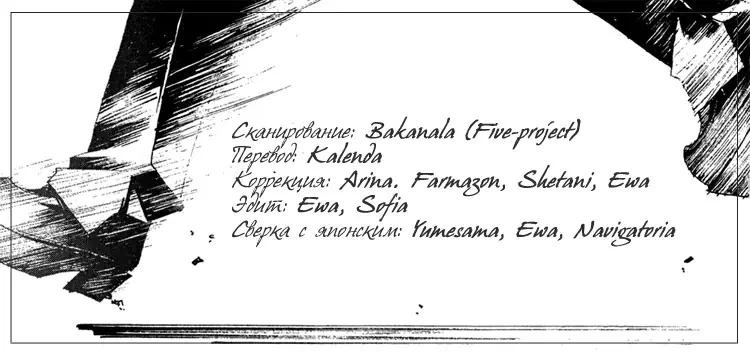 Сканирование: Bakanala (Five-project)
Перевод: Kalenda
Коррекция: Arina. Farmazon, Shetani, Ewa
Эдит: Ewa, Sofia
Сверка с японским: Yumesama, Ewa, Navigatoria